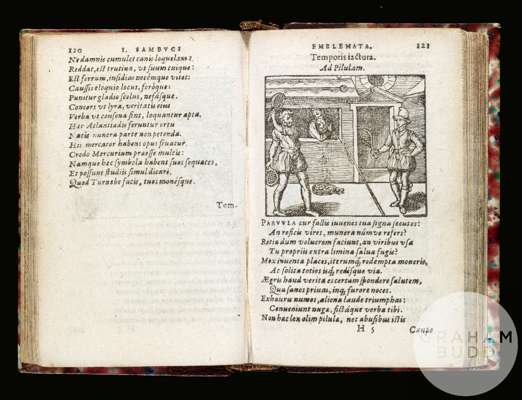 120 I. SAMBVCI
Ne damnis cumulet canis loquelam?
Reddat, est trutina, vt suum cuique:
Est ferrum, insidias necémque vitet:
Caussis eloquio locus, foróque:
Punitur gladio scelus, nefásque.
Concors vt lyra, veritatis eius
Verba vt consona sint, loquantur apta.
Hæc Atlantiadi feruntur ortu
Natis munera parte non petenda.
His mercator habens opus fruatur.
Credo Mercurium præesse multis:
Namque hæc symbola habens suos sequaces,
Et possunt studiis simul dicari,
Quod Turnebe facis, tuos monésque.
Tem-
EMBLEMATA. 121
Temporis iactura.
Ad Pilulam.
PARVVLA cur fallis iuuenes tua signa secutos?
An reficis vires, munera námve refers?
Retia dum volucrem faciunt, an viribus vsa
Tu propriis extra limina salua fugis?
Mox inuenta places, iterumq́; redempta moneris,
Ac solita toties isq́; redísque via.
Ægris haud verita es certam spondere salutem,
Qui sanos prius, inq́; furore noces.
Exhauris numos, aliena laude triumphas:
Conueniunt nugæ, fictáque verba tibi.
Non hæc lex olim pilulæ, nec abusibus istis
H 5 Campo
GRAHAM
BUDD